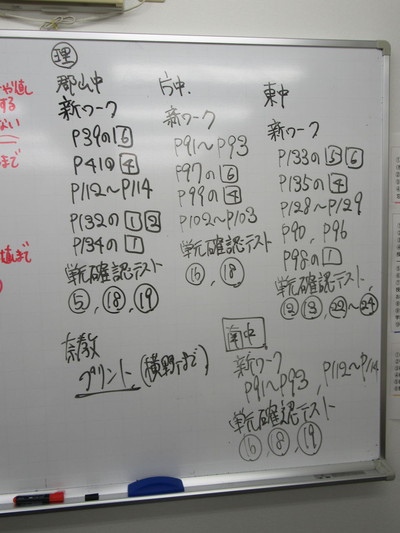 理
郡山中
新ワーク
P39の6
P41の4
P112〜P114
P132の1 2
P134の1
単元確認テスト
⑤, ⑱, ⑲
片中.
新ワーク
P91〜P93
P97の6
P99の4
P102〜P103
単元確認テスト
⑯, ⑱
東中
新ワーク
P133の5 6
P135の4
P128〜P129
P90, P96
P98の1
単元確認テスト
⑫ ⑬, ㉒〜㉔
奈教
プリント(横野まで)
南中
新ワーク
P91〜P93, P112〜P114
単元確認テスト
⑯ ⑱, ⑲
する
ない
まで